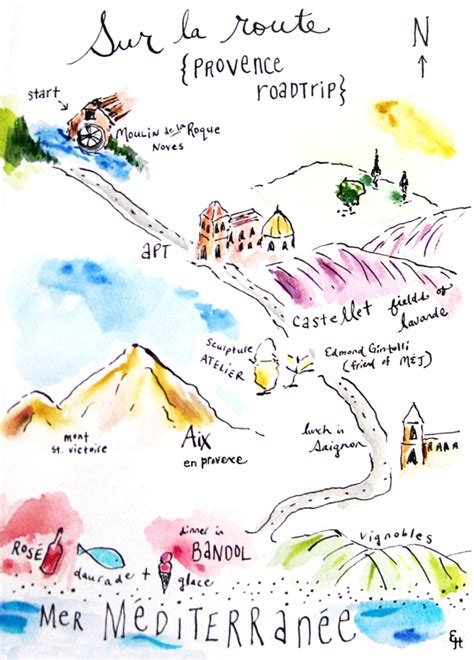 Sur la route
{PROVENCE
ROADTRIP}
N
start
Moulin de la Roque
Noves
APT
castellet fields of
lavande
sculpture
ATELIER
Edmond Gintolli
(friend of M&J)
mont
st. victoire
Aix
en provence
lunch in
Saignon
ROSÉ
daurade +
glace
dinner in
BANDOL
vignobles
MER MÉDITERRANÉE
EH